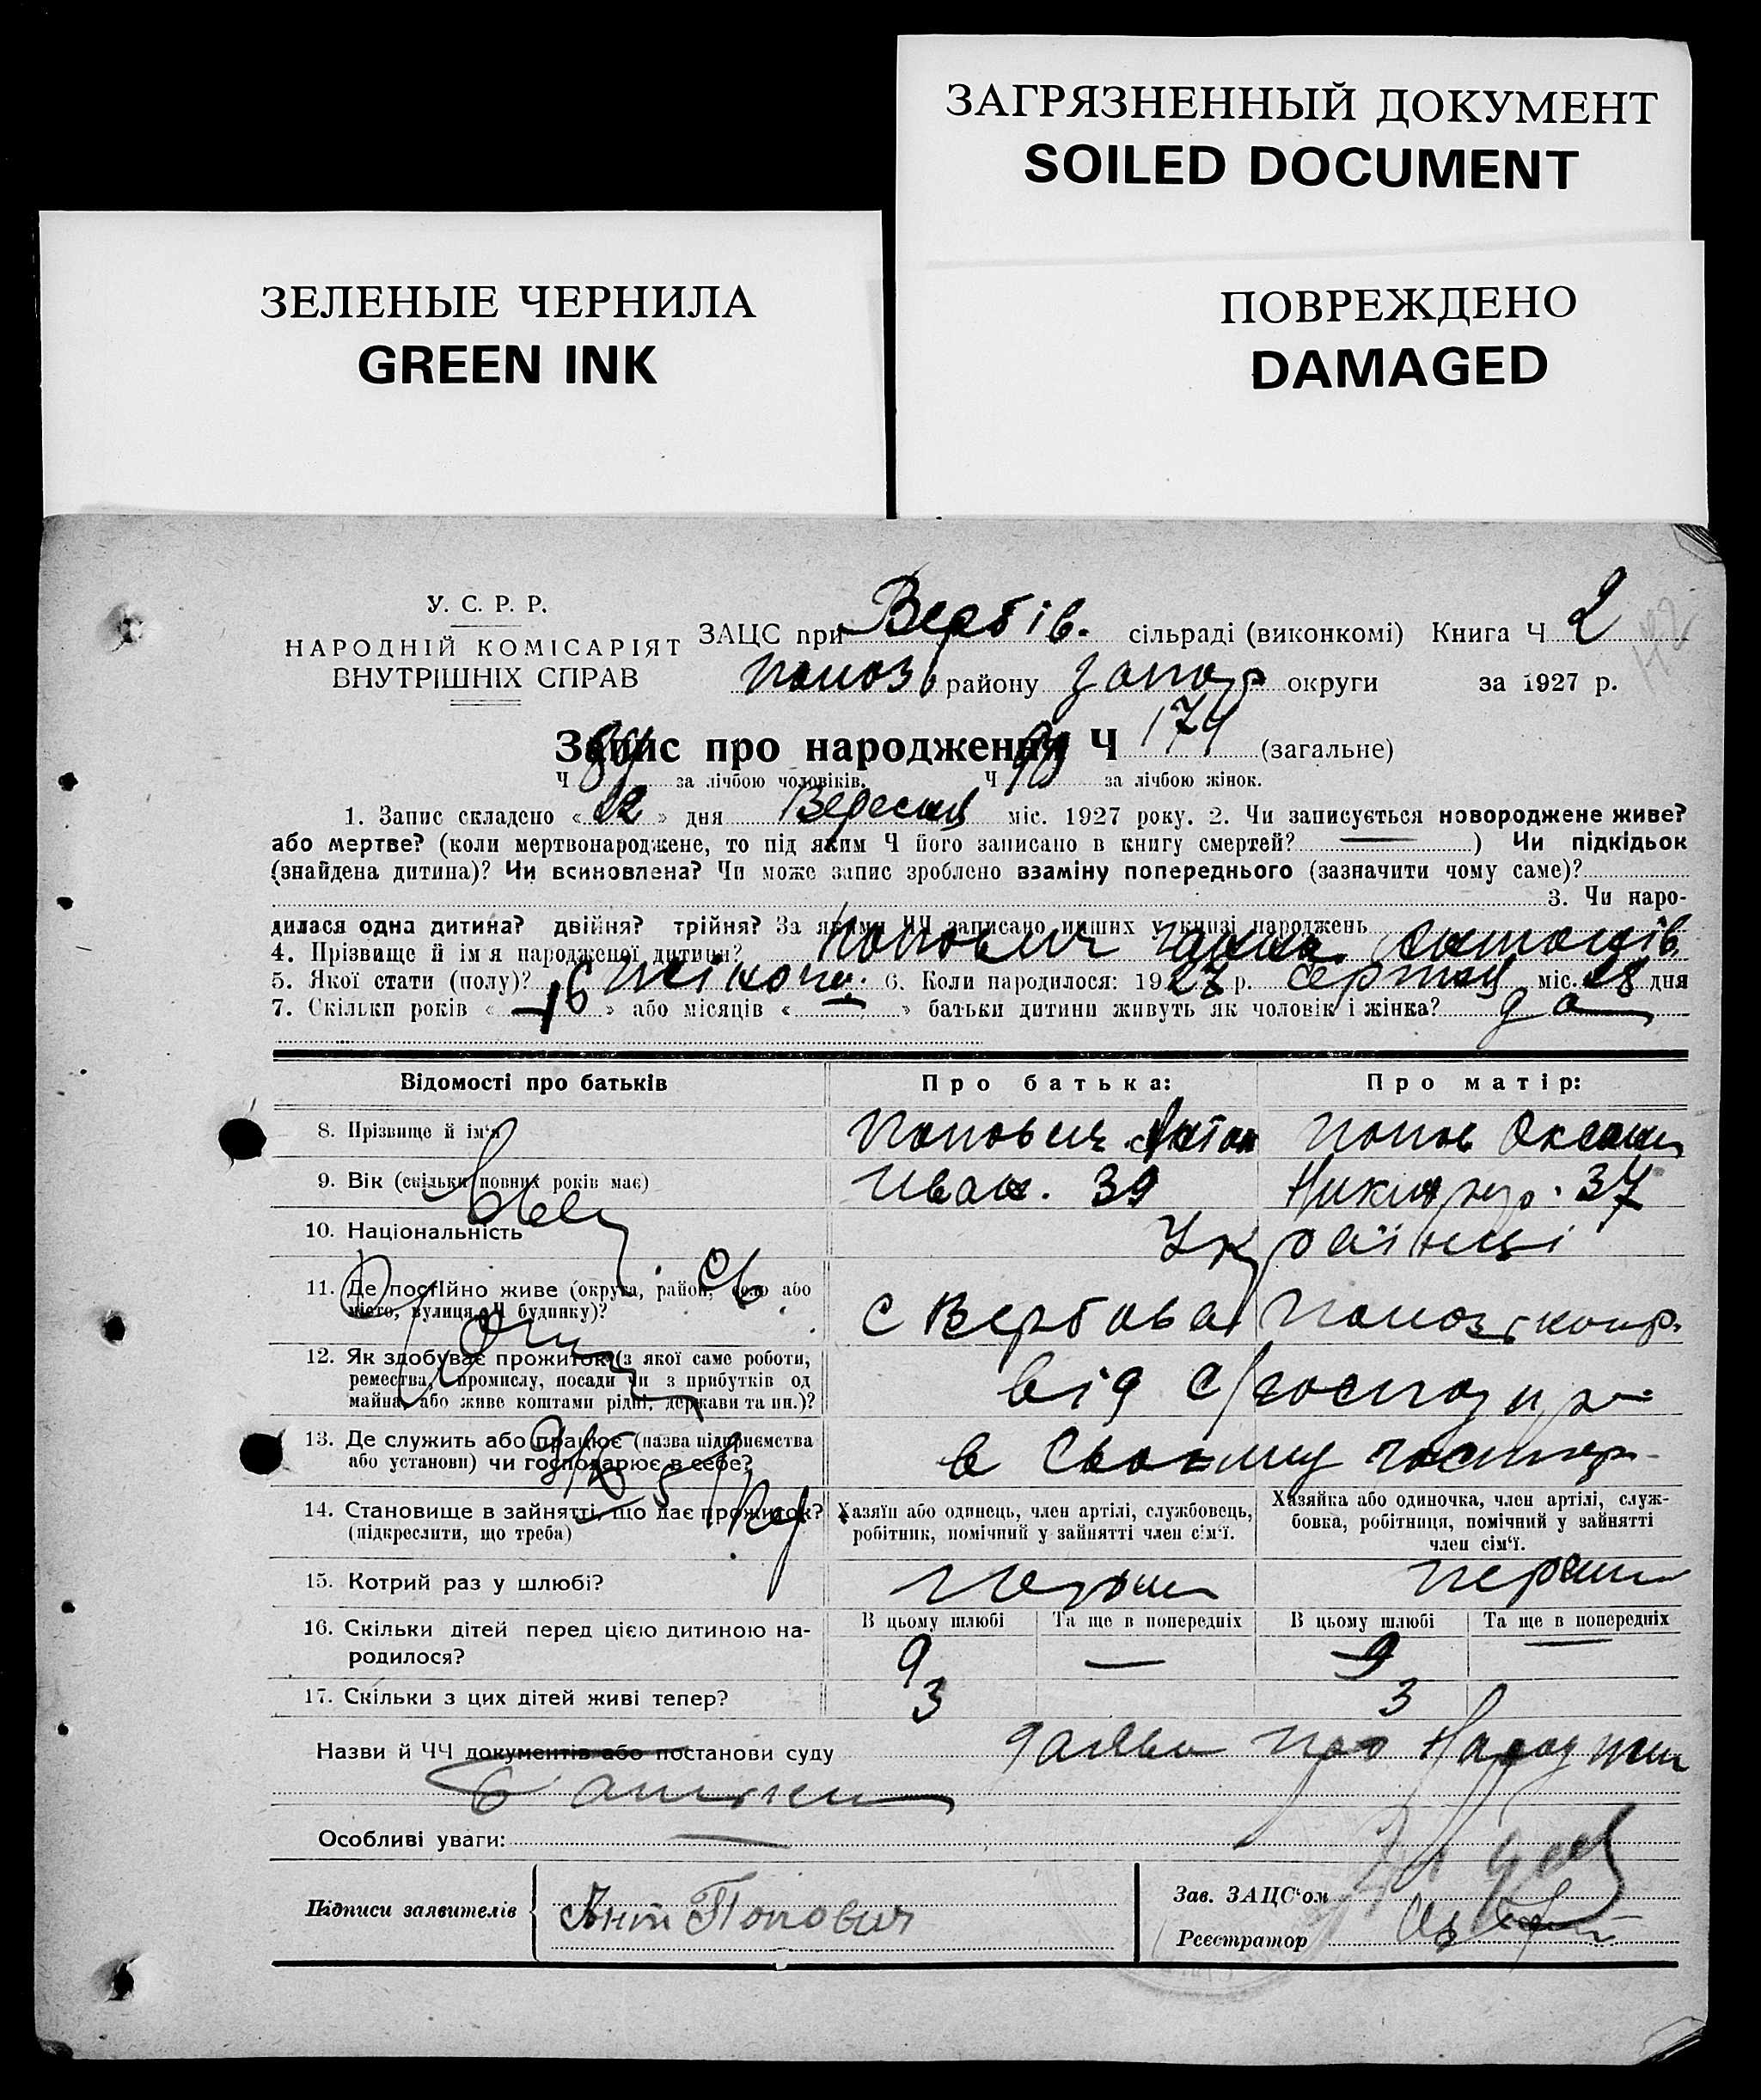 ЗАГРЯЗНЕННЫЙ ДОКУМЕНТ
SOILED DOCUMENT
ЗЕЛЕНЫЕ ЧЕРНИЛА
GREEN INK
ПОВРЕЖДЕНО
DAMAGED
У. С. Р. Р.
НАРОДНІЙ КОМІСАРІЯТ
ВНУТРІШНІХ СПРАВ
ЗАЦС при Вербів. сільраді (виконкомі) Книга Ч 2
району Запор округи за 1927 р.
Запис про народження Ч 174 (загальне)
Ч за лічбою чоловіків. Ч 90 за лічбою жінок.
1. Запис складено « » дня Вересня міс. 1927 року. 2. Чи записується новороджене живе?
або мертве? (коли мертвонароджене, то під яким Ч його записано в книгу смертей? — ) Чи підкідьок
(знайдена дитина)? Чи всиновлена? Чи може запис зроблено взаміну попереднього (зазначити чому саме)?
3. Чи наро-
дилася одна дитина? двійня? трійня? За якими ЧЧ записано инших у книзі народжень
4. Прізвище й ім'я народженої дитини? Попович Антонів
5. Якої стати (полу)? жіноча. 6. Коли народилося: 1927 р. Серпня міс. 28 дня
7. Скільки років « 16 » або місяців « — » батьки дитини живуть як чоловік і жінка? да
Відомості про батьків
Про батька:
Про матір:
8. Прізвище й ім'я
Попович Антон
Попов Оксана
9. Вік (скільки повних років має)
Иван. 39
37
10. Національність
Українці
11. Де постійно живе (округа, район, село або
місто, вулиця, Ч будинку)?
с Вербова
12. Як здобуває прожиток (з якої саме роботи,
ремества, промислу, посади чи з прибутків од
майна або живе коштами рідні, держави та ин.)?
від с/господар
13. Де служить або працює (назва підприємства
або установи) чи господарює в себе?
в своєму господар
14. Становище в зайнятті, що дає прожиток?
(підкреслити, що треба)
Хазяїн або одинець, член артілі, службовець,
робітник, помічний у зайнятті член сім'ї.
Хазяйка або одиночка, член артілі, служ-
бовка, робітниця, помічний у зайнятті
член сім'ї.
15. Котрий раз у шлюбі?
перший
перший
16. Скільки дітей перед цією дитиною на-
родилося?
В цьому шлюбі
Та ще в попередніх
В цьому шлюбі
Та ще в попередніх
9 — 9 —
17. Скільки з цих дітей живі тепер?
3 3
Назви й ЧЧ документів або постанови суду
Заява про народжен
Особливі уваги: —
Підписи заявителів
Ант Попович
Зав. ЗАЦС'ом
Реєстратор